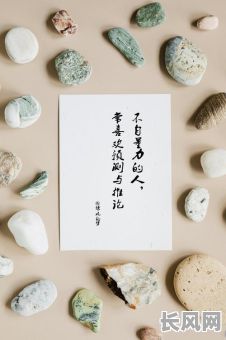 不自量力的人，
常喜欢预测与推论
长风网